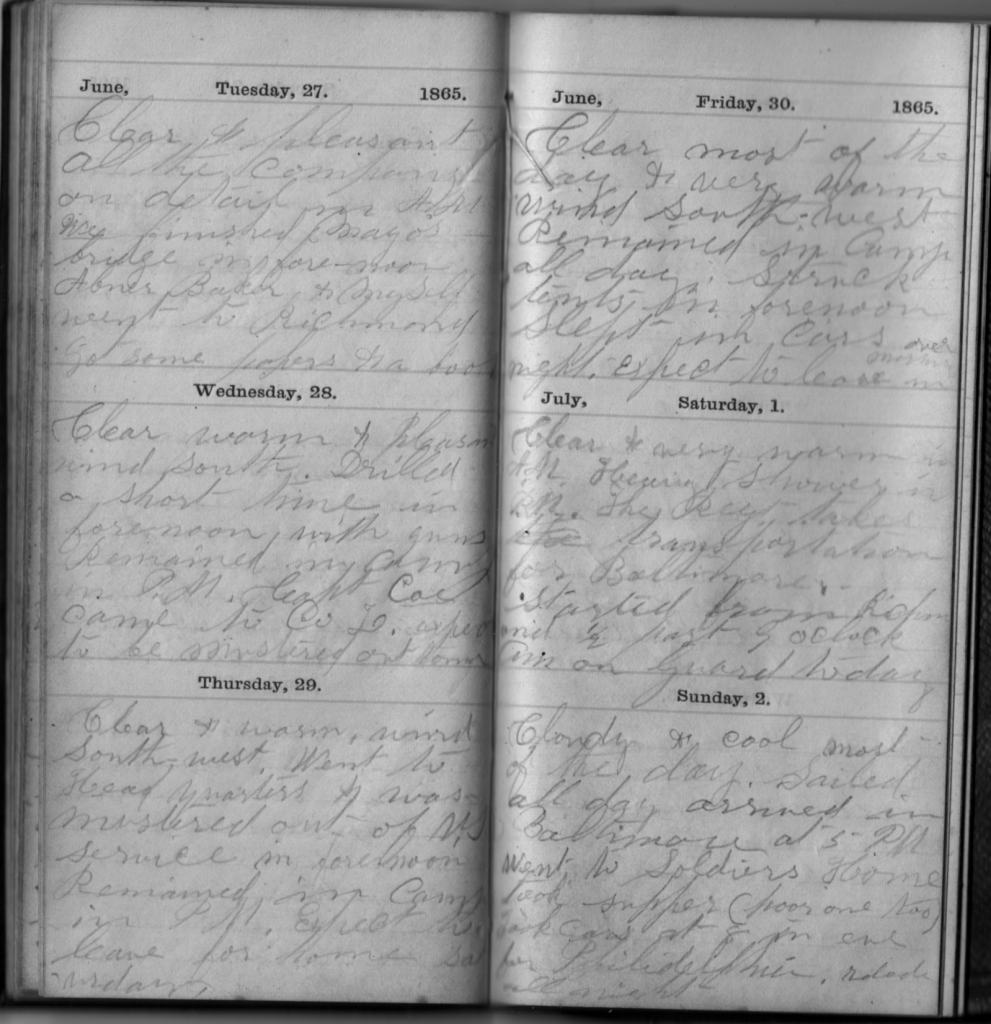 June, Tuesday, 27. 1865.
Clear & pleasant
all the company
on detail in
finished Mayo's
bridge in fore-noon
Abner Baker & Myself
went to Richmond
Got some papers & a book
Wednesday, 28.
Clear warm & Pleasan
wind South. Drilled
a short time in
forenoon, with guns
Remained in Camp
in P.M. Capt Coe
came to Co expect
to be mustered out tomor
Thursday, 29.
Clear & warm, wind
South-west. Went to
Head Quarters & was
mustered out of U.S
service in forenoon
Remained in Camp
in P.M. Expect to
leave for home Sat
urday
June, Friday, 30. 1865.
Clear most of the
day & very warm
wind South-west
Remained in Camp
all day. Struck
tents in forenoon
Slept in Cars over
night. Expect to leave in
morning
July, Saturday, 1.
Clear & very warm in
A.M. Heavy Shower in
P.M. The Regt. takes
the transportation
for Baltimore.
Started from Richm
ond ½ past 9 oclock
Am on Guard to day
Sunday, 2.
Cloudy & cool most
of the day. Sailed
all day arrived in
Baltimore at 5 PM
Went to Soldiers Home
took supper (poor one too)
took Cars at 8 in eve
for Philidelphia, rode
all night